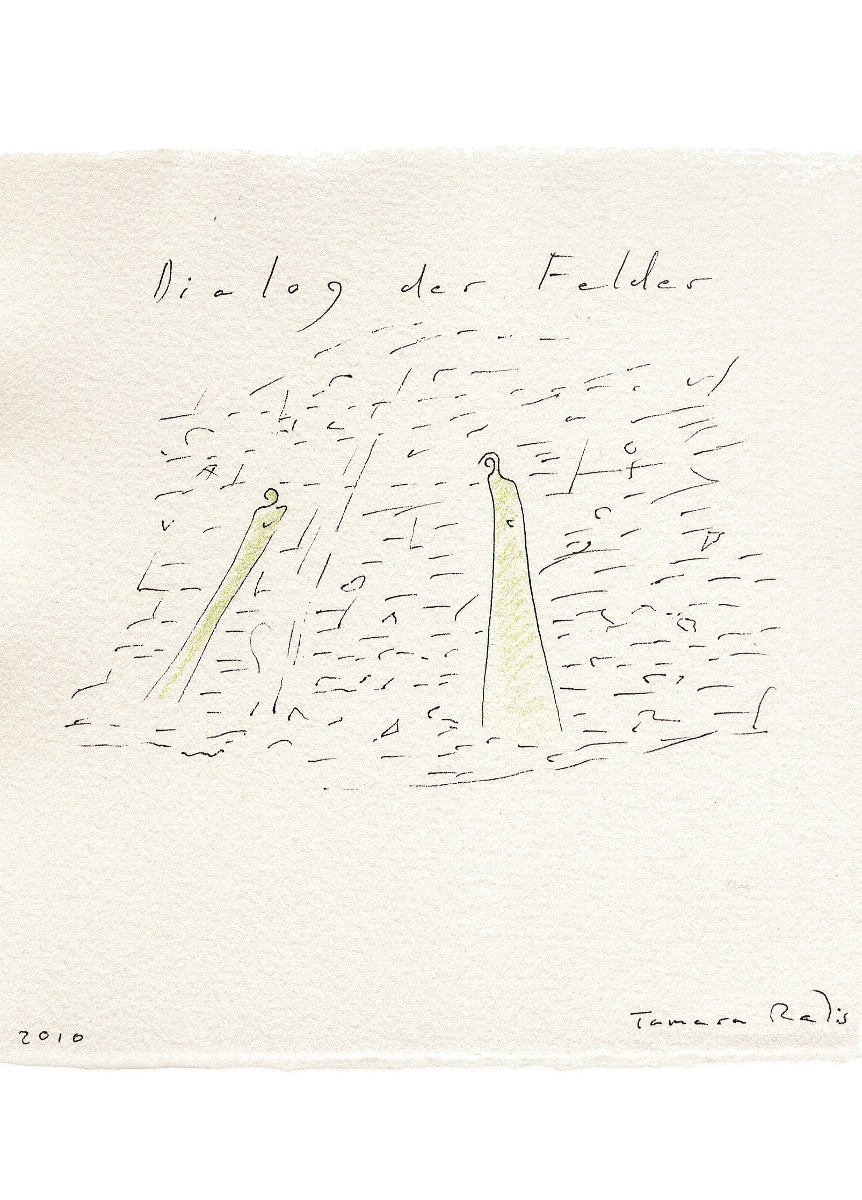 Dialog der Felder
2010
Tamara Ralis